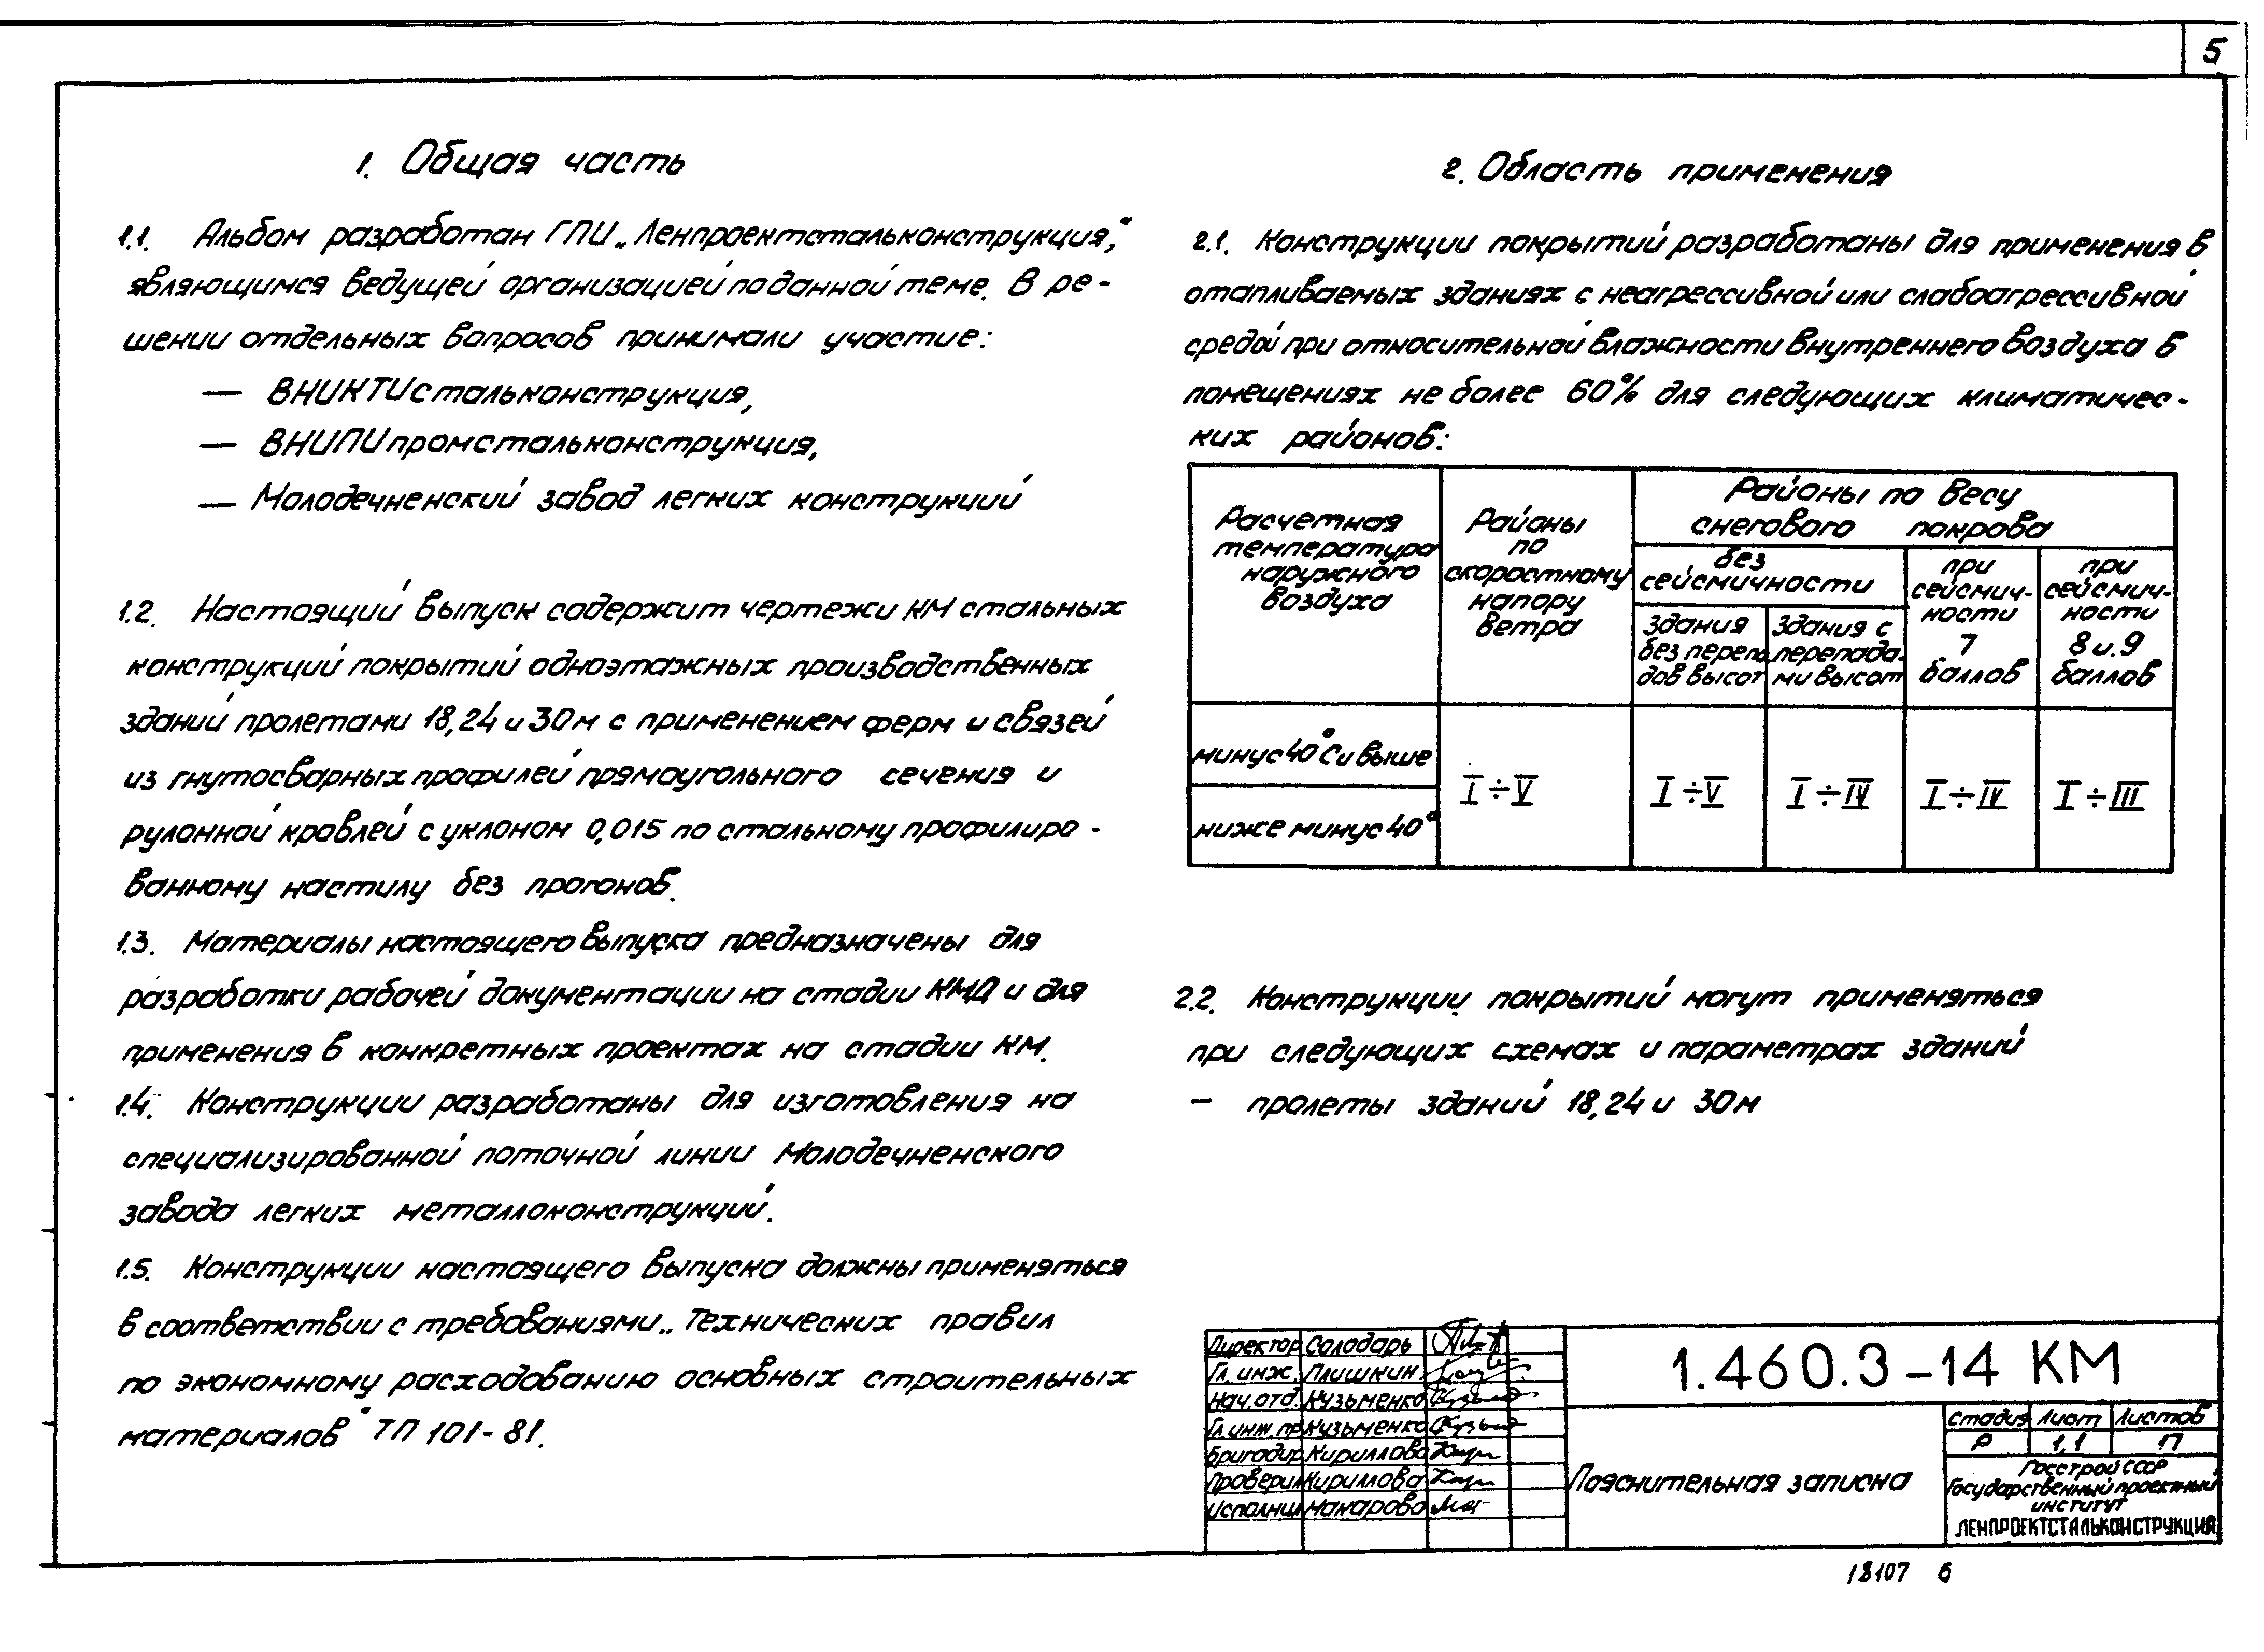 5
1. Общая часть
1.1. Альбом разработан ГПИ „Ленпроектстальконструкция,“
являющимся ведущей организацией по данной теме. В ре-
шении отдельных вопросов принимали участие:
— ВНИКТИстальконструкция,
— ВНИПИпромстальконструкция,
— Молодечненский завод легких конструкций
1.2. Настоящий выпуск содержит чертежи КМ стальных
конструкций покрытий одноэтажных производственных
зданий пролетами 18, 24 и 30 м с применением ферм и связей
из гнутосварных профилей прямоугольного сечения и
рулонной кровлей с уклоном 0,015 по стальному профилиро-
ванному настилу без прогонов.
1.3. Материалы настоящего выпуска предназначены для
разработки рабочей документации на стадии КМД и для
применения в конкретных проектах на стадии КМ.
1.4. Конструкции разработаны для изготовления на
специализированной поточной линии Молодечненского
завода легких металлоконструкций.
1.5. Конструкции настоящего выпуска должны применяться
в соответствии с требованиями „Технических правил
по экономному расходованию основных строительных
материалов“ ТП 101-81.
2. Область применения
2.1. Конструкции покрытий разработаны для применения в
отапливаемых зданиях с неагрессивной или слабоагрессивной
средой при относительной влажности внутреннего воздуха в
помещениях не более 60% для следующих климатичес-
ких районов:
Расчетная
температура
наружного
воздуха
Районы
по
скоростному
напору
ветра
Районы по весу
снегового покрова
без
сейсмичности
при
сейсмич-
ности
7
баллов
при
сейсмич-
ности
8 и 9
баллов
здания
без перепа
дов высот
здания с
перепада-
ми высот
минус 40°С и выше
ниже минус 40°
I÷V
I÷V
I÷IV
I÷IV
I÷III
2.2. Конструкции покрытий могут применяться
при следующих схемах и параметрах зданий
- пролеты зданий 18, 24 и 30 м
Директор Солодарь
Гл. инж. Плишкин
Нач. отд. Кузьменко
Гл. инж. пр. Кузьменко
Бригадир Кириллова
Проверил Кириллова
Исполнил Макарова
1.460.3-14 КМ
Пояснительная записка
Стадия Лист Листов
Р 1.1 17
Госстрой СССР
Государственный проектный
институт
ЛЕНПРОЕКТСТАЛЬКОНСТРУКЦИЯ
18107 6